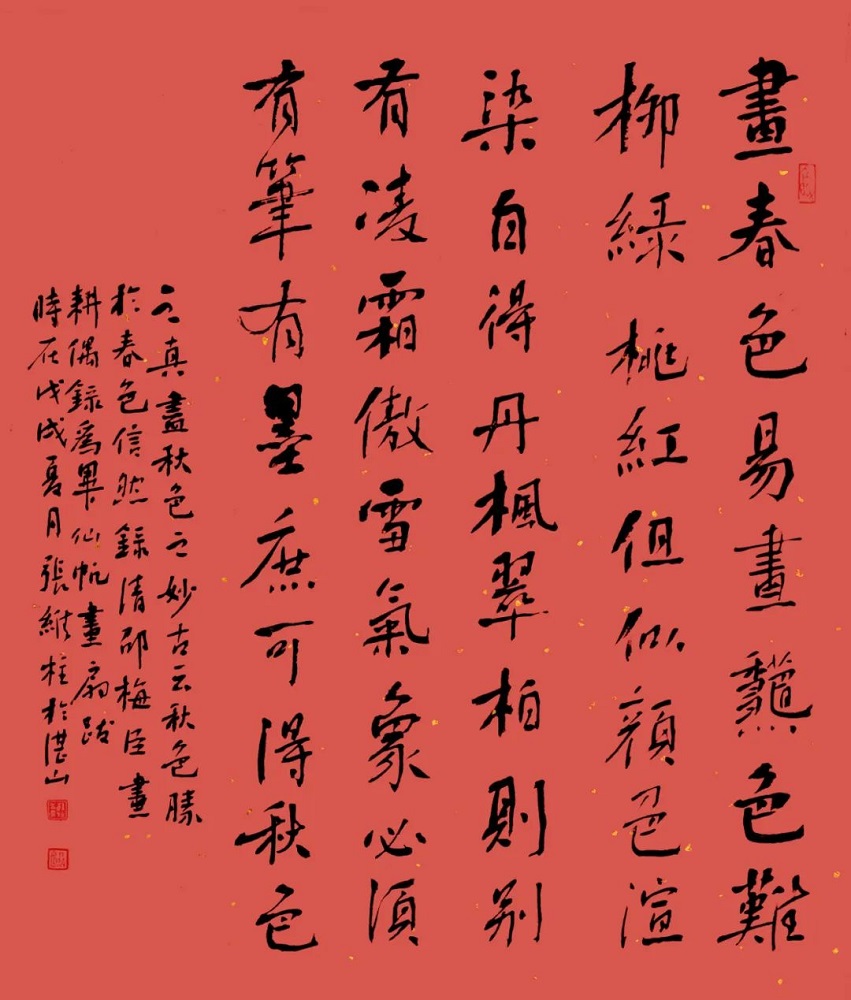 畫春色易畫龝色難
柳綠桃紅但似顏色渲
染自得丹楓翠柏則別
有凌霜傲雪氣象必須
有筆有墨庶可得秋色
之真盡秋色之妙古云秋色勝
於春色信然錄清邵梅臣畫
耕偶錄爲畢仙帆畫扇跋
時在戊戌夏月張柱於湛山